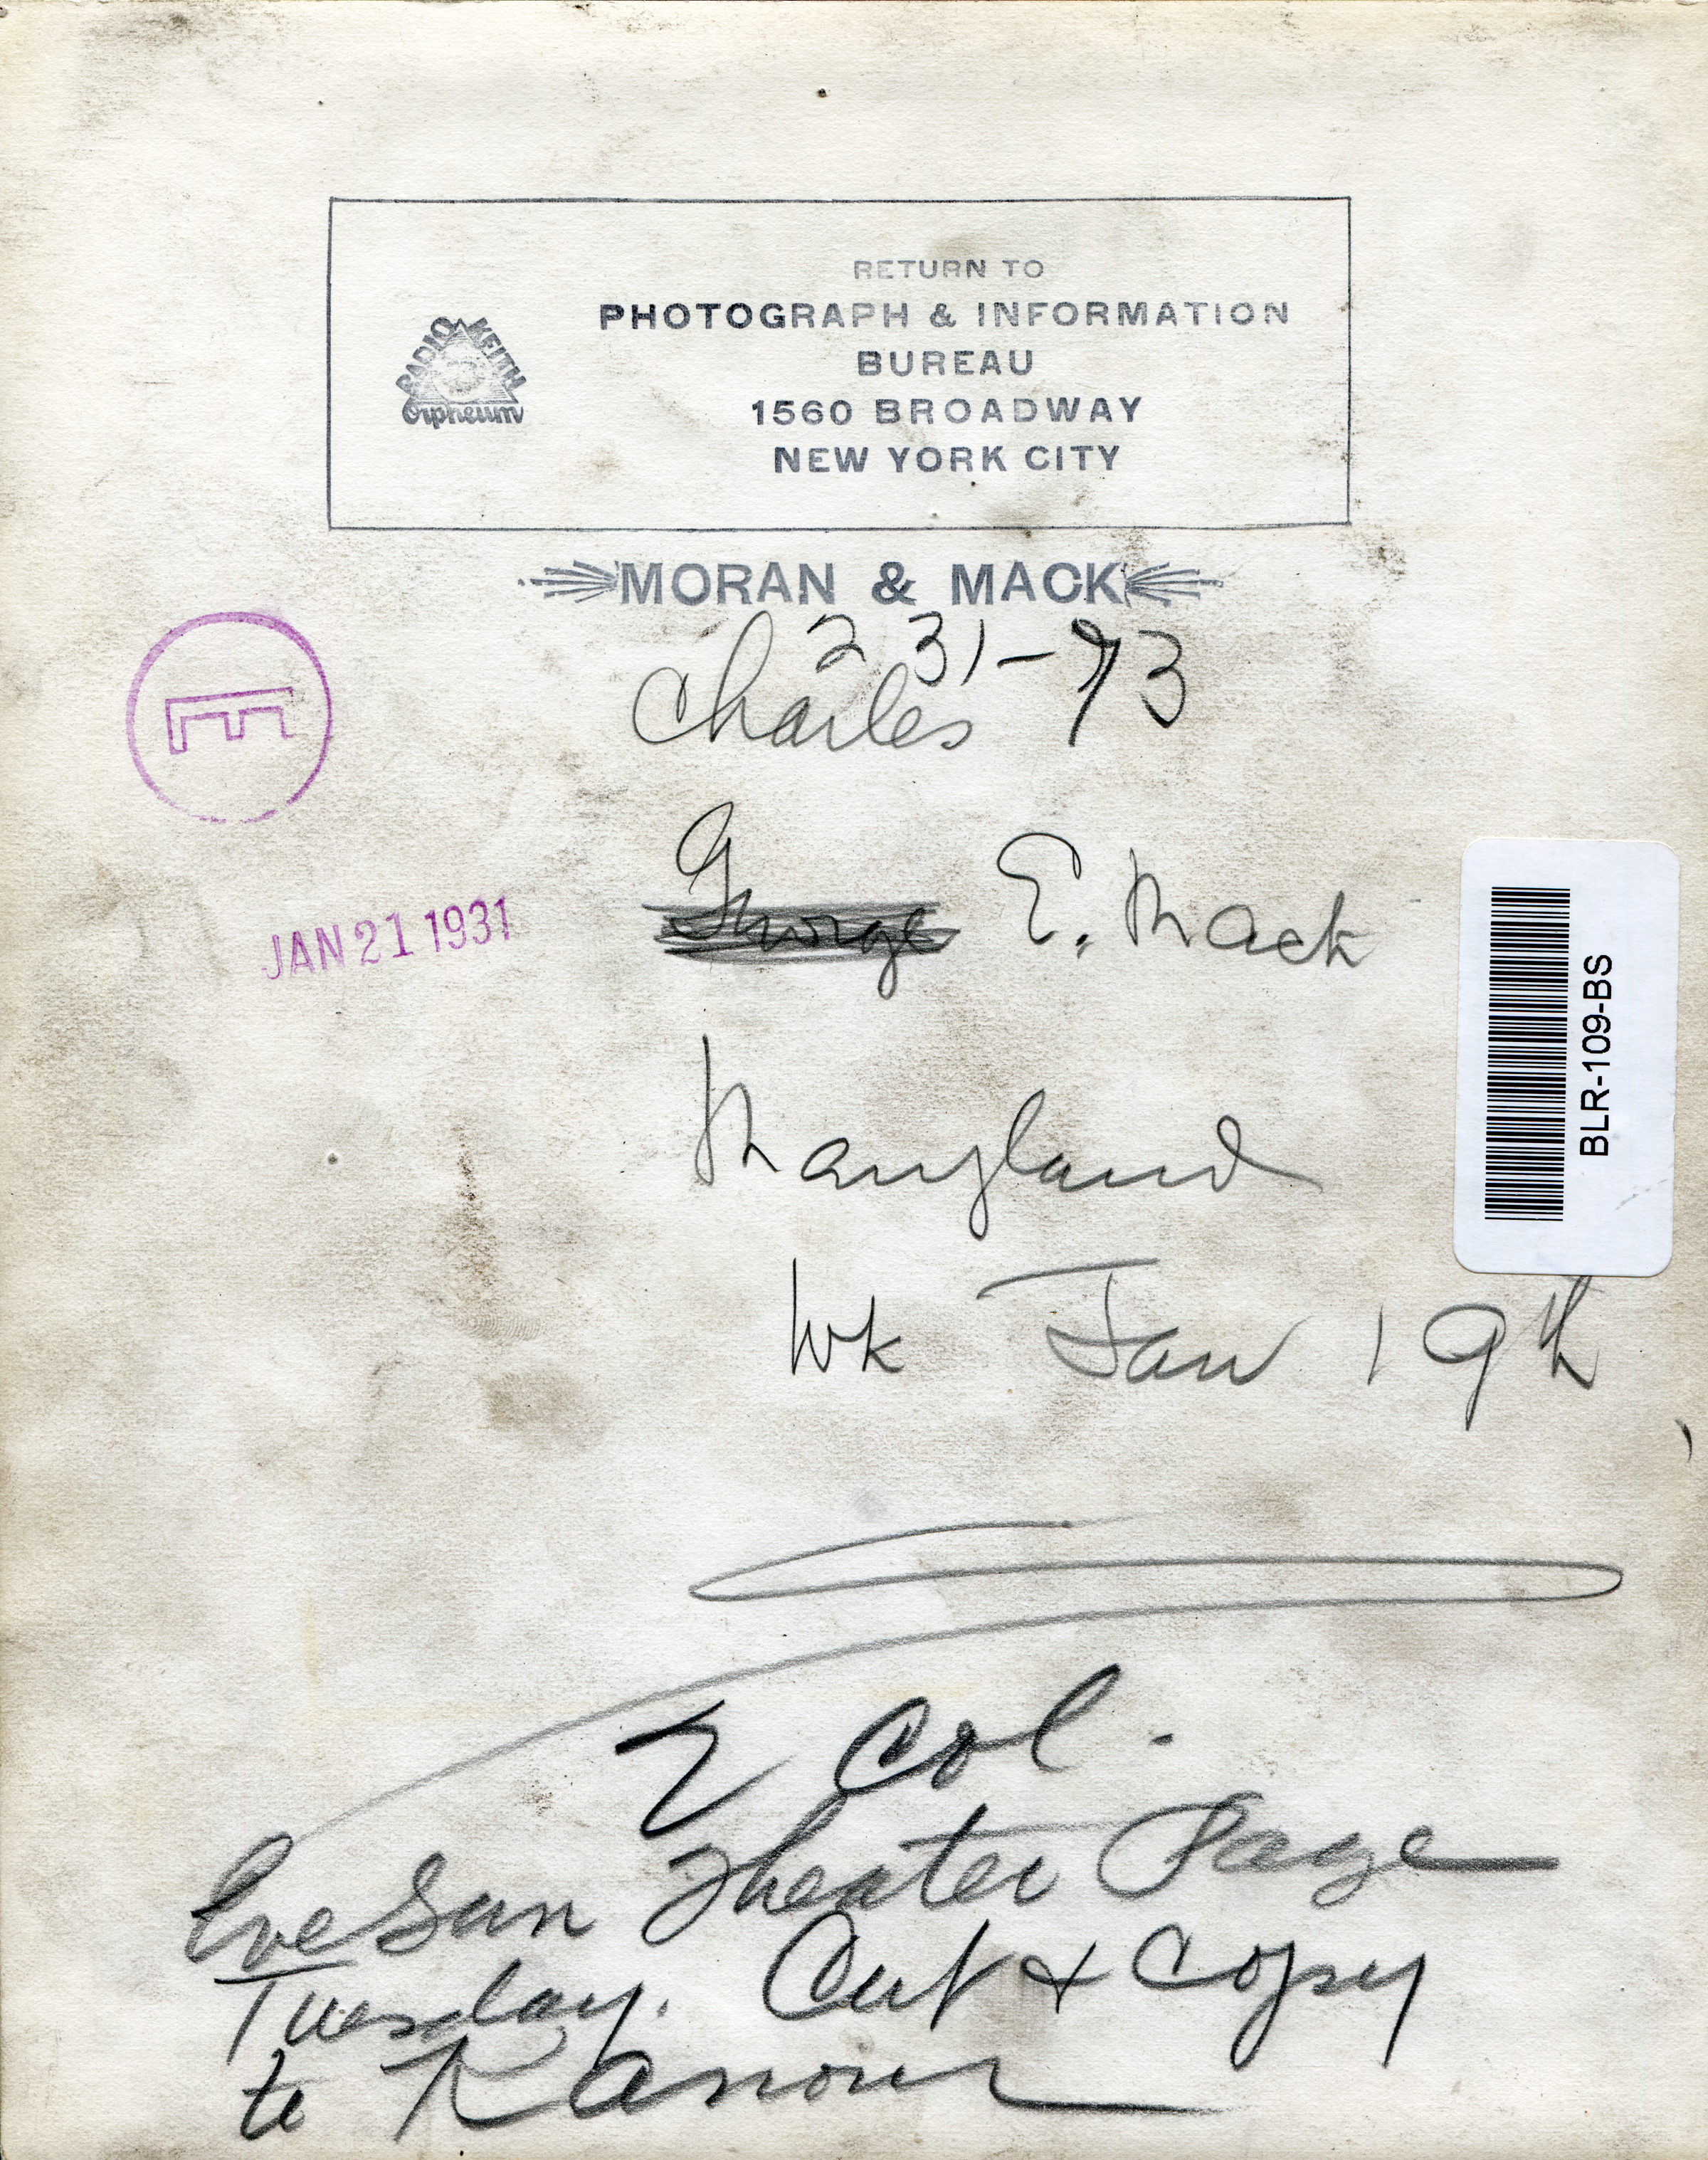 RETURN TO
PHOTOGRAPH & INFORMATION
BUREAU
1560 BROADWAY
NEW YORK CITY
RADIO KEITH
Orpheum
MORAN & MACK
2 31-93
Charles
George E. Mack
JAN 21 1931
BLR-109-BS
Maryland
wk Jan 19th
2 Col.
Eve Sun Theater Page
Tuesday. Cut & Copy
to Kanour